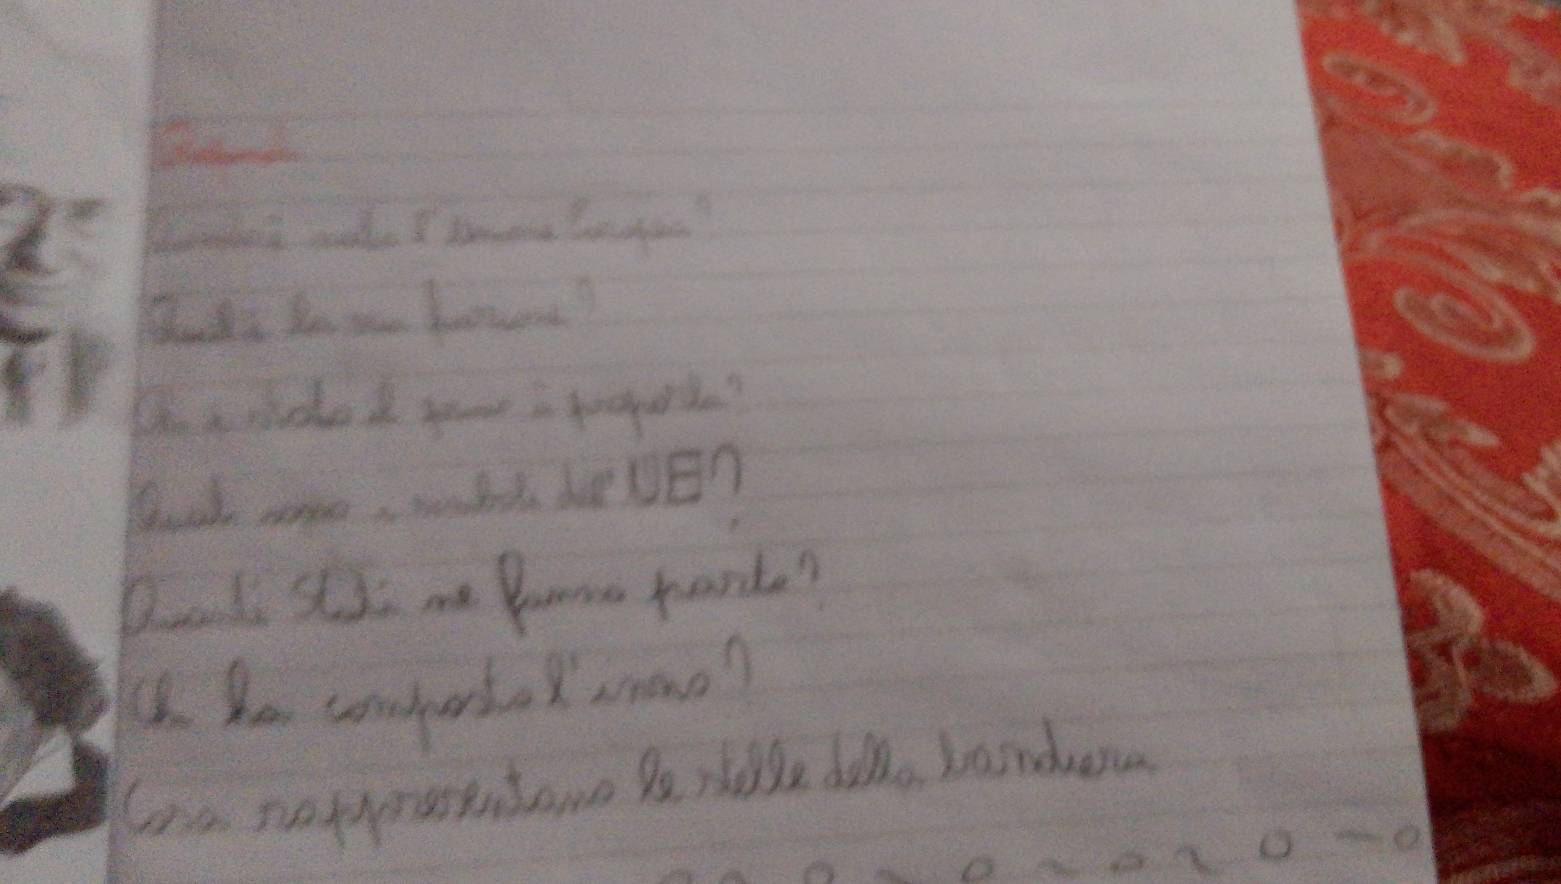 nata l'Unione Europea?
la sua
Chi è stato il primo a proporla?
Quali sono i simboli dell'UE?
Quanti Stati ne fanno parte?
Chi ha composto l'inno?
Cosa rappresentano le stelle della bandiera